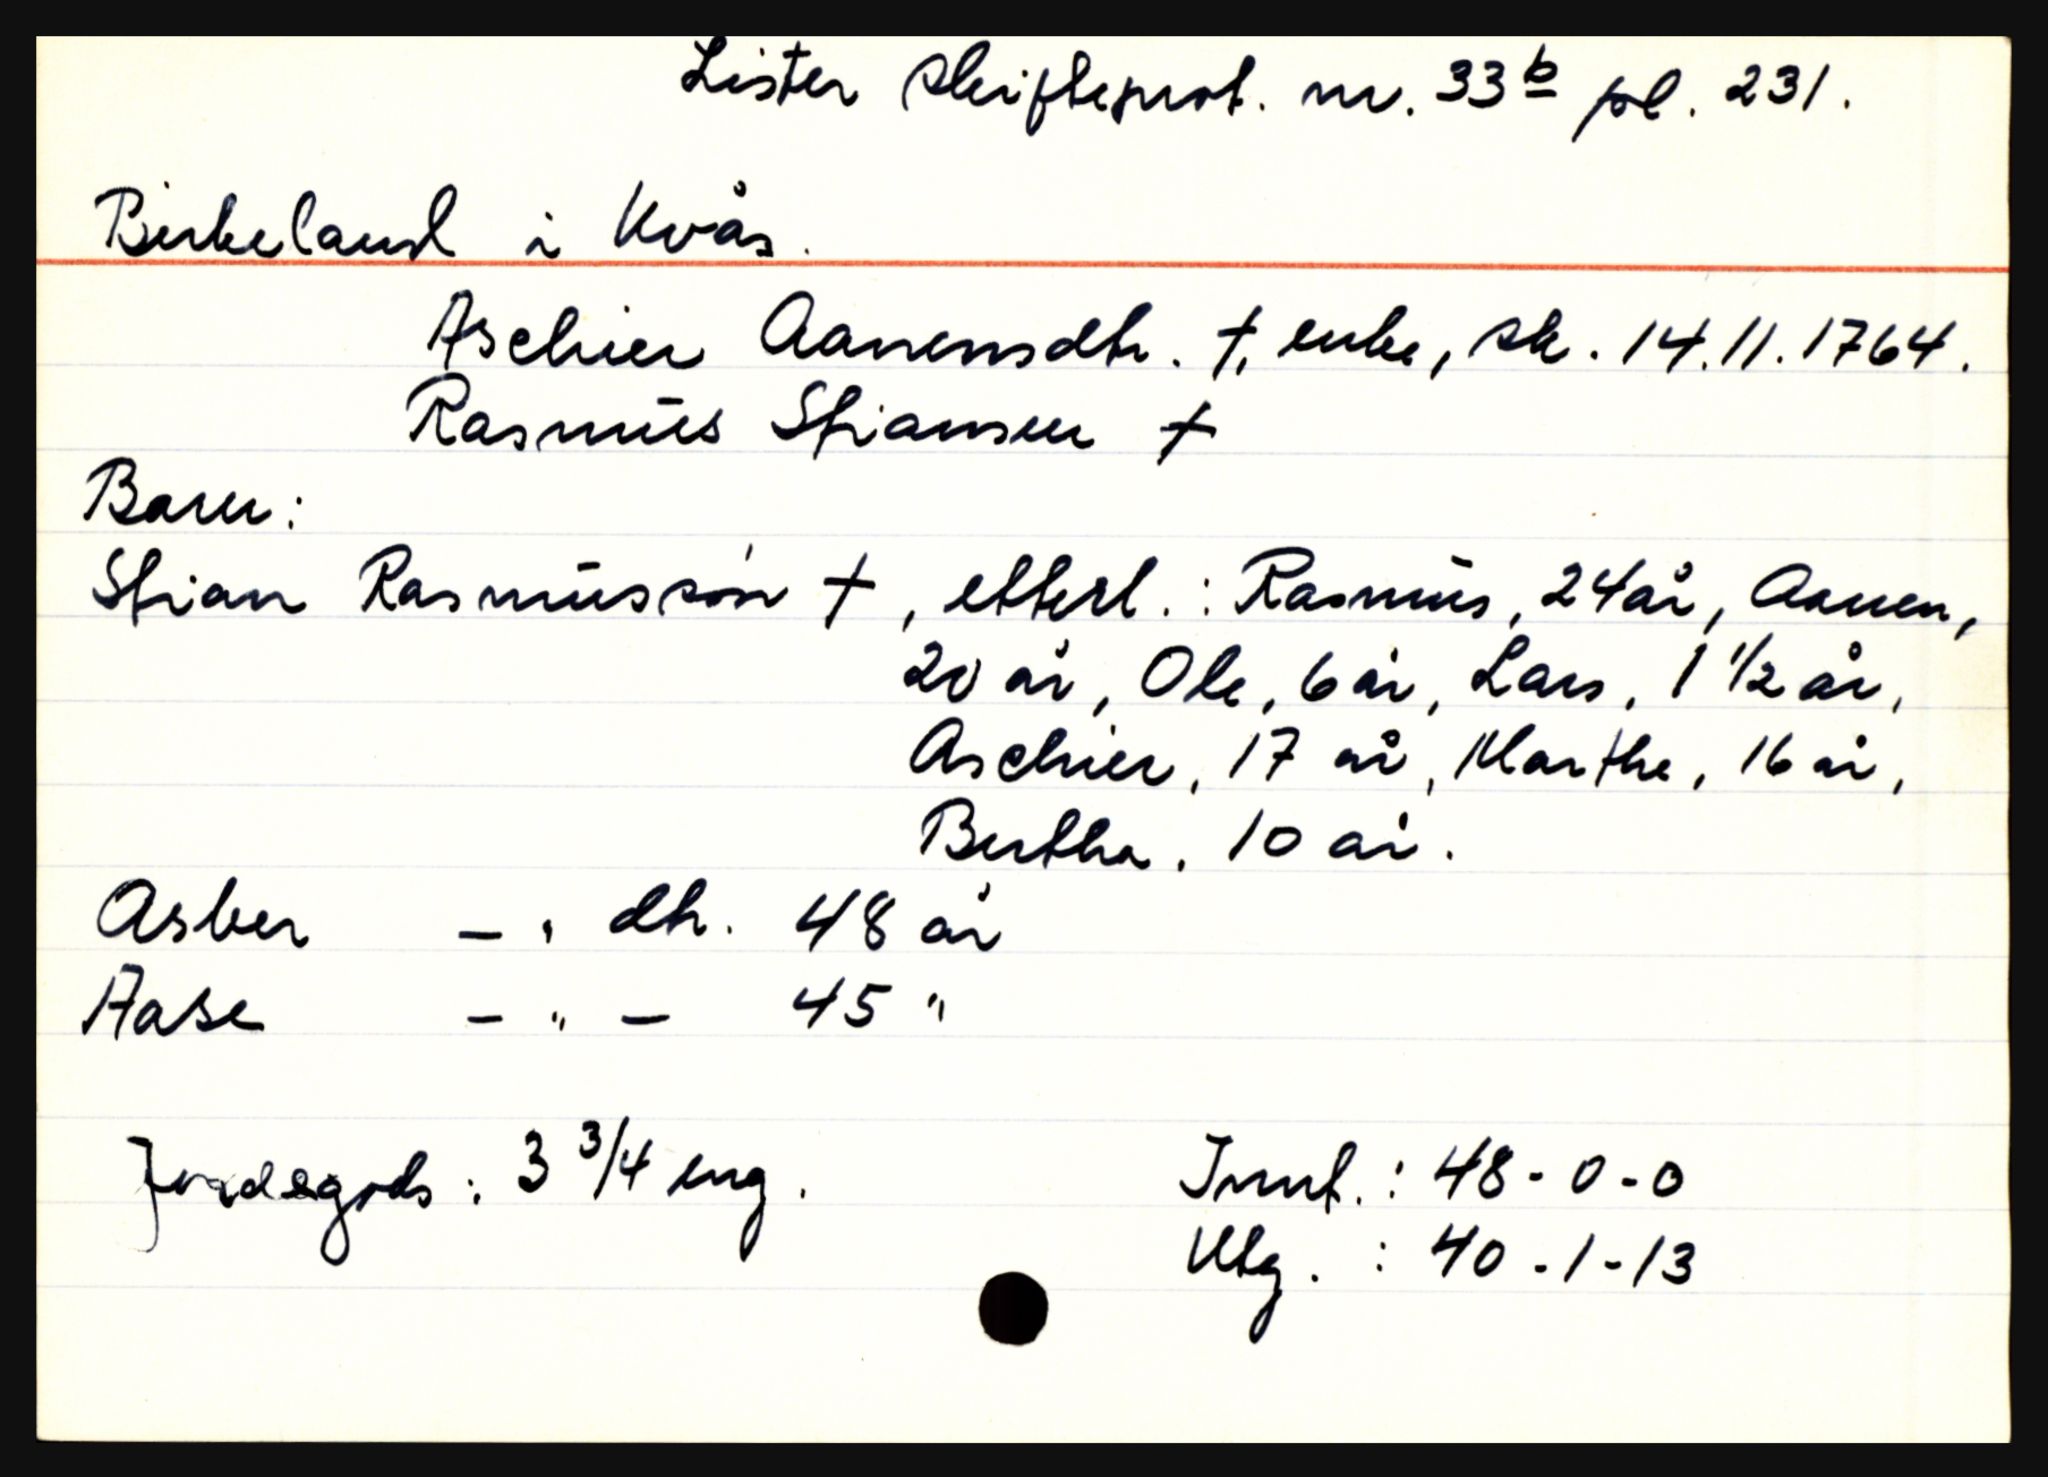 Lister skifteprot. nr. 33b fol. 231.
Birkeland i Kvås.
Aschier Aanensdtr. †, enke, sk. 14.11.1764.
Rasmus Stiansen †
Barn:
Stian Rasmussøn †, etterl.: Rasmus, 24 år, Aanen,
20 år, Ole, 6 år, Lars, 1 1/2 år,
Aschier, 17 år, Marthe, 16 år,
Bertha, 10 år.
Asber - " dtr. 48 år
Aase - " - 45 "
Jordegods: 3 3/4 eng. Innt.: 48-0-0
Utg. : 40-1-13